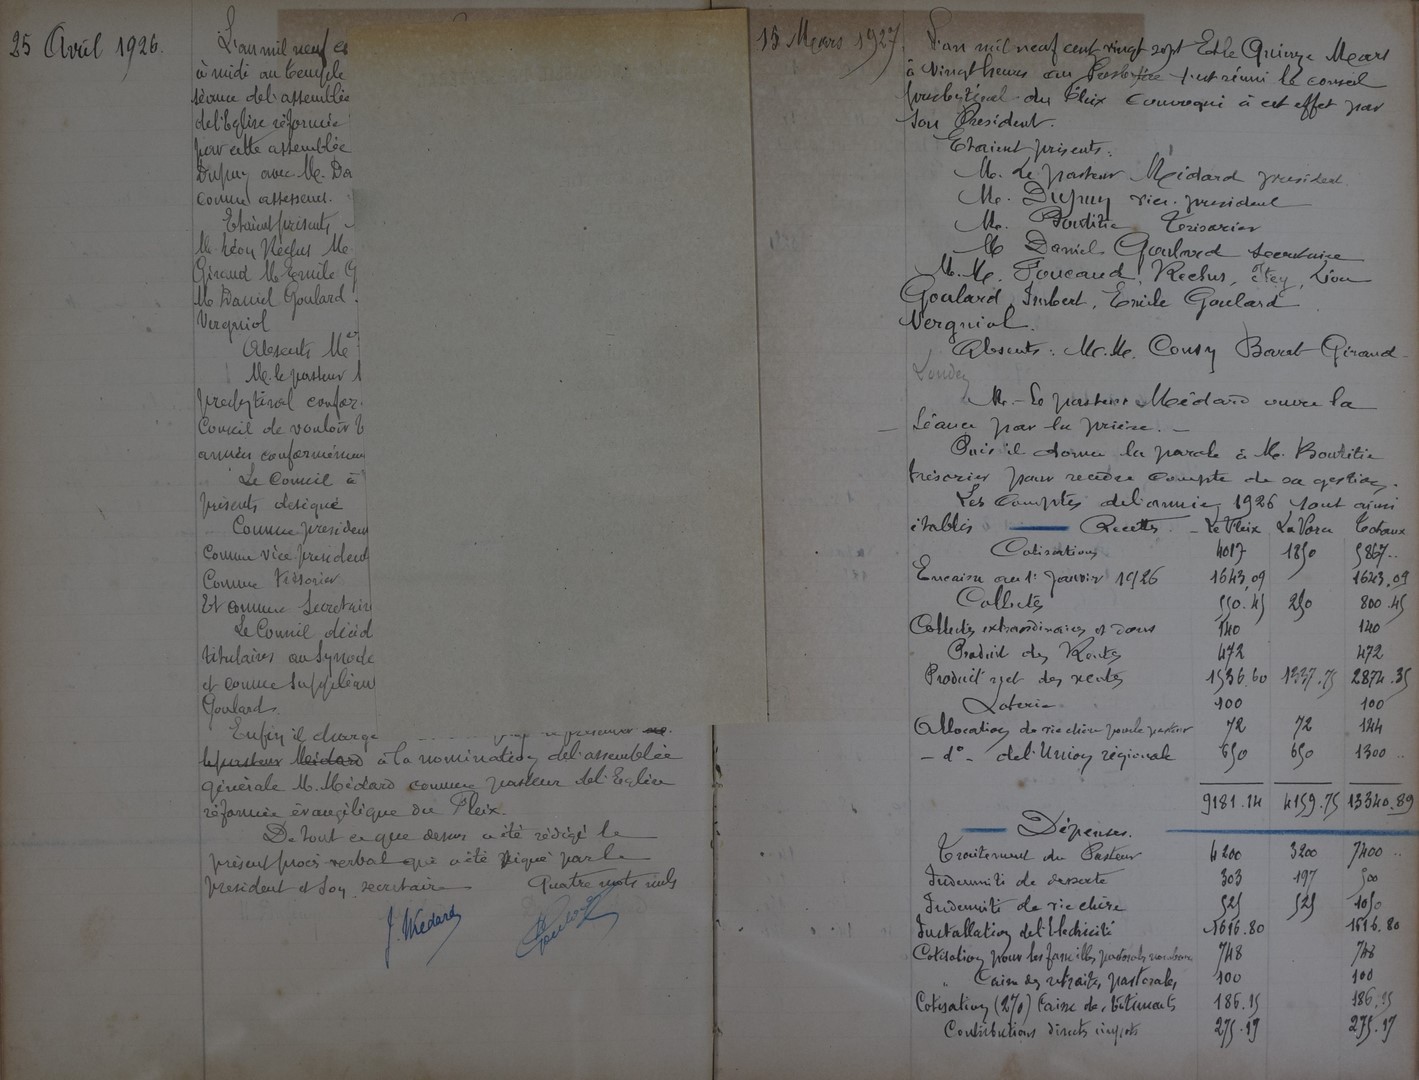 25 Avril 1926.
L'an mil neuf ce
à midi au temple
séance de l'assemblée
de l'Eglise réformée
par cette assemblée
Dupuy avec M. Da
comme assesseur.
Etaient présents
M. Léon Reclus Me
Giraud M Emile G
M Daniel Goulard.
Vergniol
Absents Me
M. le pasteur
presbytéral confor.
Conseil de vouloir b
années conformément
Le Conseil à
présents désigne
Comme président
Comme vice président
Comme trésorier
Et comme Secrétaire
Le Conseil décid
titulaires au Synode
et comme Suppléan
Goulard.
Enfin il charge
le pasteur Médard à la nomination de l'assemblée
générale M. Médard comme pasteur de l'Eglise
réformée évangélique du Fleix.
De tout ce que dessus a été rédigé le
présent procès verbal qui a été signé par le
président et son secrétaire Quatre mots nuls
J. Médard
15 Mars 1927
L'an mil neuf cent vingt sept Et le Quinze Mars
à vingt heures au Presbytère s'est réuni le conseil
presbytéral du Fleix convoqué à cet effet par
son Président.
Etaient présents:
M. Le pasteur Médard président
M. Dupuy vice-président
M. Trésorier
M Daniel Goulard secrétaire
M.M. Foucaud, Reclus, Léon
Goulard, Imbert, Emile Goulard
Vergniol.
Absents: M.M. Barat Giraud
M. Le pasteur Médard ouvre la
séance par la prière.
Puis il donne la parole à M.
trésorier pour rendre compte de sa gestion.
Les comptes de l'année 1926 sont ainsi
établis Recettes Le Fleix Totaux
Cotisations 4017 1850 5867..
Encaisse au 1er Janvier 1926 1643,09 1643,09
Collectes 550.45 250 800.45
Collectes extraordinaires et dons 140 140
Produit des Rentes 472 472
Produit net des ventes 1536.60 1337.75 2874.35
Loterie 100 100
Allocation de vie chère pour le pasteur 72 72 144
- d° - de l'Union régionale 650 650 1300 ..
9181.14 4159.75 13340.89
Dépenses.
Traitement du Pasteur 4200 3200 7400 ..
Indemnité de desserte 303 197 500
Indemnité de vie chère 525 525 1050
Installation de l'Electricité 1616.80 1616.80
Cotisation pour les familles pastorales nombreuses 748 748
" Caisse des retraites pastorales 100 100
Cotisation (2%) Caisse des bâtiments 186.15 186.15
Contributions directes impôts 275.17 275.17